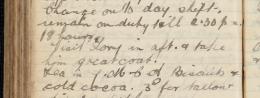 change on ½ day shift.
remain on duty till 2.30 p =
18 hours.
Visit Tory in aft. & take
him great coat.
Tea in Y.M.C.A Biscuits &
cold cocoa. 3d for tallow